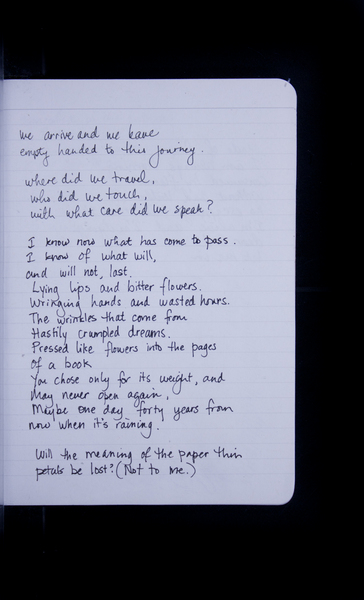 we arrive and we leave
empty handed to this journey.
where did we travel,
who did we touch,
with what care did we speak?
I know now what has come to pass.
I know of what will,
and will not, last.
Lying lips and bitter flowers.
Wringing hands and wasted hours.
The wrinkles that come from
Hastily crumpled dreams.
Pressed like flowers into the pages
of a book
You chose only for its weight, and
May never open again,
Maybe one day forty years from
now when it's raining.
Will the meaning of the paper thin
petals be lost? (Not to me.)